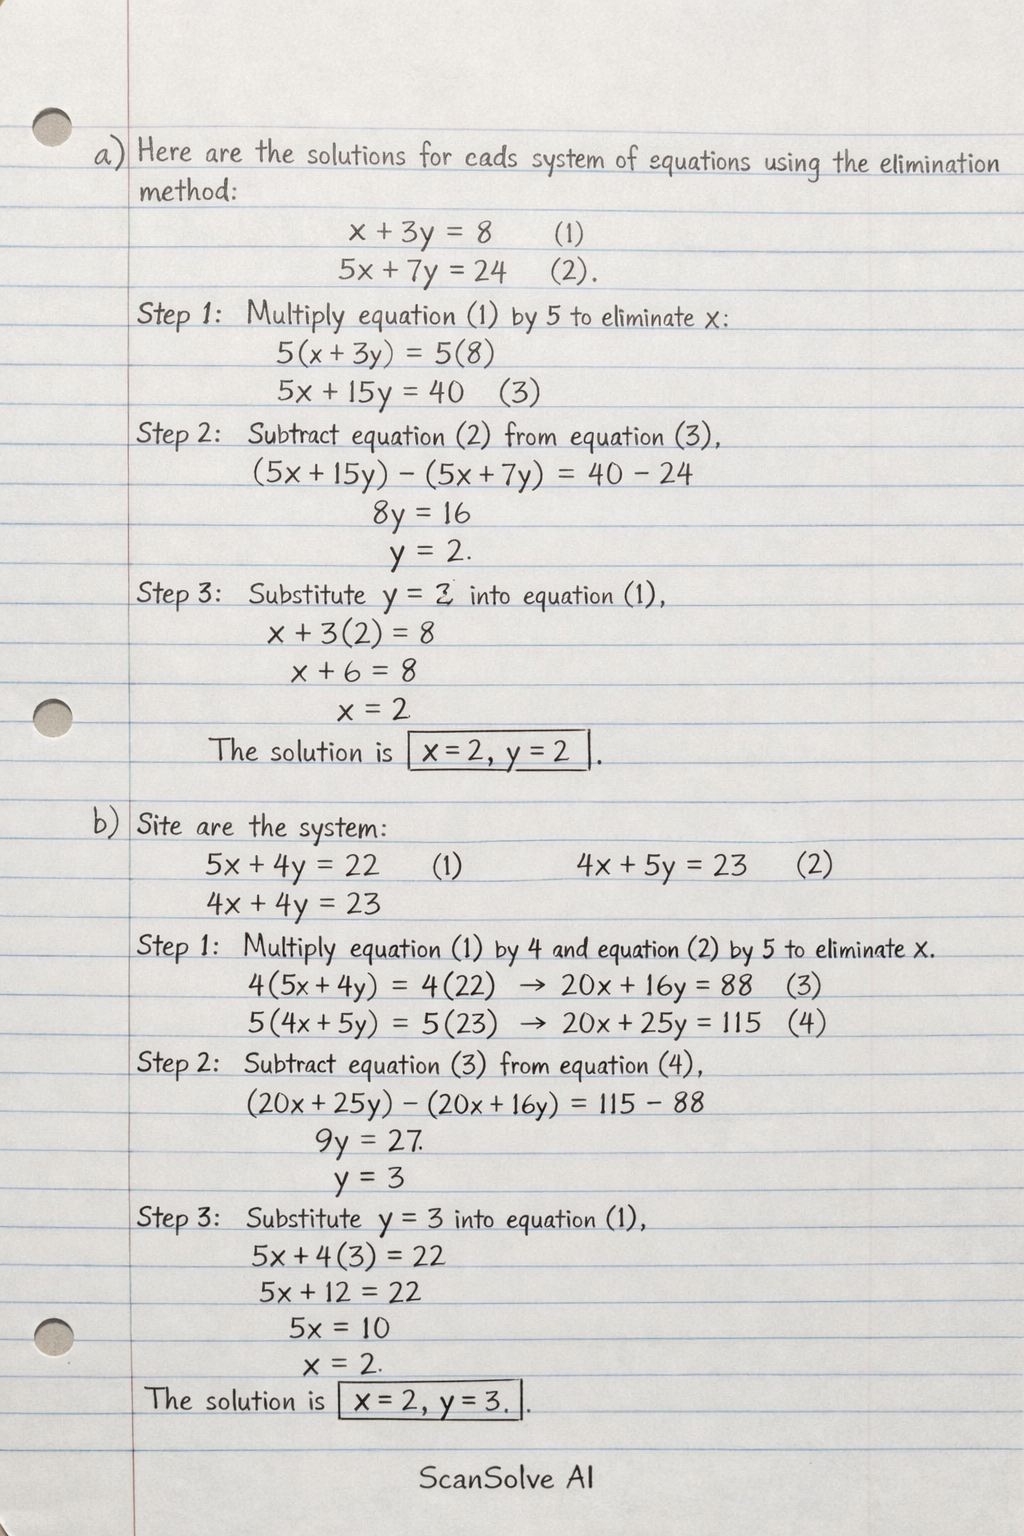 a) Here are the solutions for cads system of equations using the elimination
method:
x + 3y = 8 (1)
5x + 7y = 24 (2).
Step 1: Multiply equation (1) by 5 to eliminate x:
5(x + 3y) = 5(8)
5x + 15y = 40 (3)
Step 2: Subtract equation (2) from equation (3),
(5x + 15y) − (5x + 7y) = 40 − 24
8y = 16
y = 2.
Step 3: Substitute y = 2 into equation (1),
x + 3(2) = 8
x + 6 = 8
x = 2
The solution is x = 2, y = 2.
b) Site are the system:
5x + 4y = 22 (1) 4x + 5y = 23 (2)
4x + 4y = 23
Step 1: Multiply equation (1) by 4 and equation (2) by 5 to eliminate x.
4(5x + 4y) = 4(22) → 20x + 16y = 88 (3)
5(4x + 5y) = 5(23) → 20x + 25y = 115 (4)
Step 2: Subtract equation (3) from equation (4),
(20x + 25y) − (20x + 16y) = 115 − 88
9y = 27.
y = 3
Step 3: Substitute y = 3 into equation (1),
5x + 4(3) = 22
5x + 12 = 22
5x = 10
x = 2.
The solution is x = 2, y = 3..
ScanSolve AI